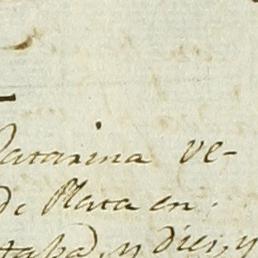 Catarina ve-
de Plata en
tapa, y diez, y